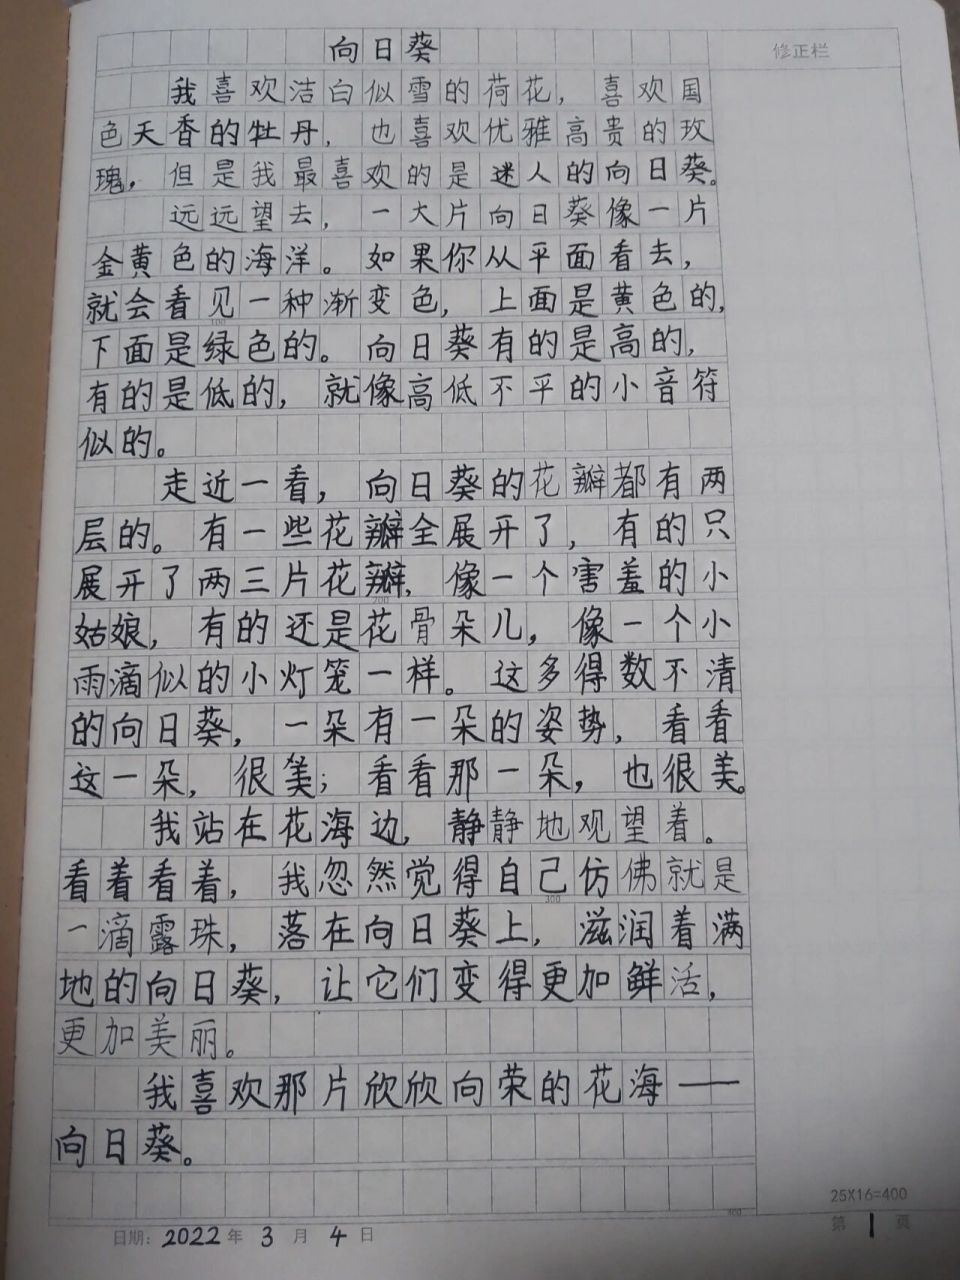 向日葵
修正栏
我喜欢洁白似雪的荷花，喜欢国
色天香的牡丹，也喜欢优雅高贵的玫
瑰，但是我最喜欢的是迷人的向日葵。
远远望去，一大片向日葵像一片
金黄色的海洋。如果你从平面看去，
就会看见一种渐变色，上面是黄色的，
100
下面是绿色的。向日葵有的是高的，
有的是低的，就像高低不平的小音符
似的。
走近一看，向日葵的花瓣都有两
层的。有一些花瓣全展开了，有的只
展开了两三片花瓣，像一个害羞的小
200
姑娘，有的还是花骨朵儿，像一个小
雨滴似的小灯笼一样。这多得数不清
的向日葵，一朵有一朵的姿势，看看
这一朵，很美；看看那一朵，也很美。
我站在花海边，静静地观望着。
看着看着，我忽然觉得自己仿佛就是
300
一滴露珠，落在向日葵上，滋润着满
地的向日葵，让它们变得更加鲜活，
更加美丽。
我喜欢那片欣欣向荣的花海——
向日葵。
400
25X16=400
日期：2022年3月4日
第1页